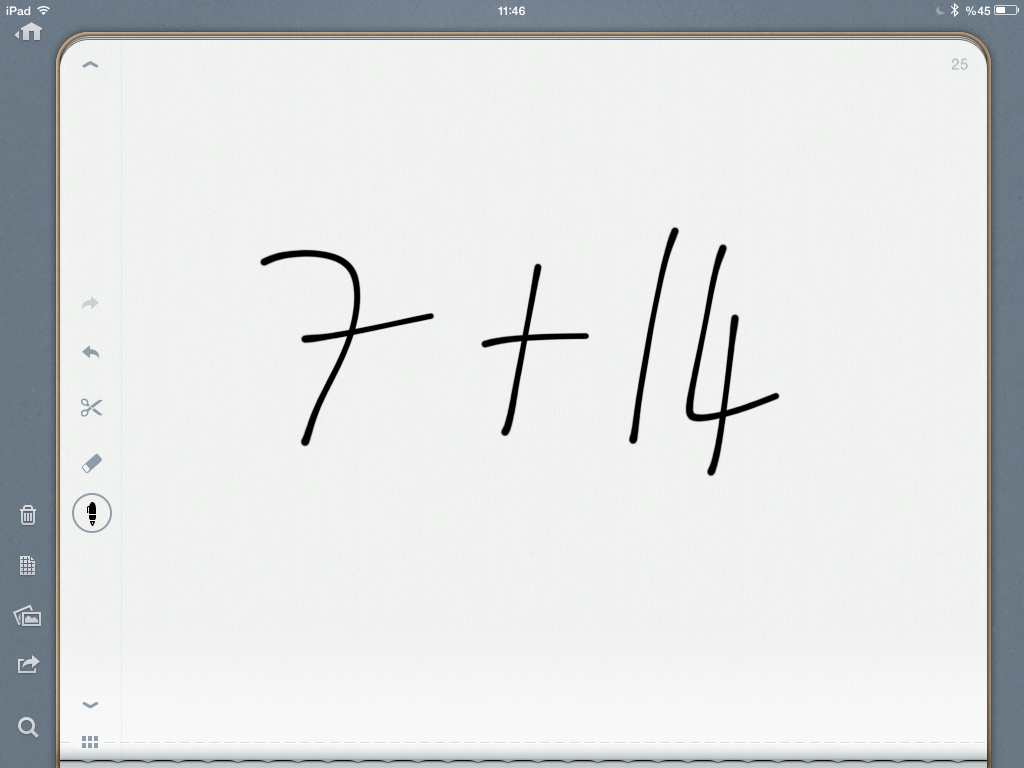 iPad 11:46 %45
25
7 + 14